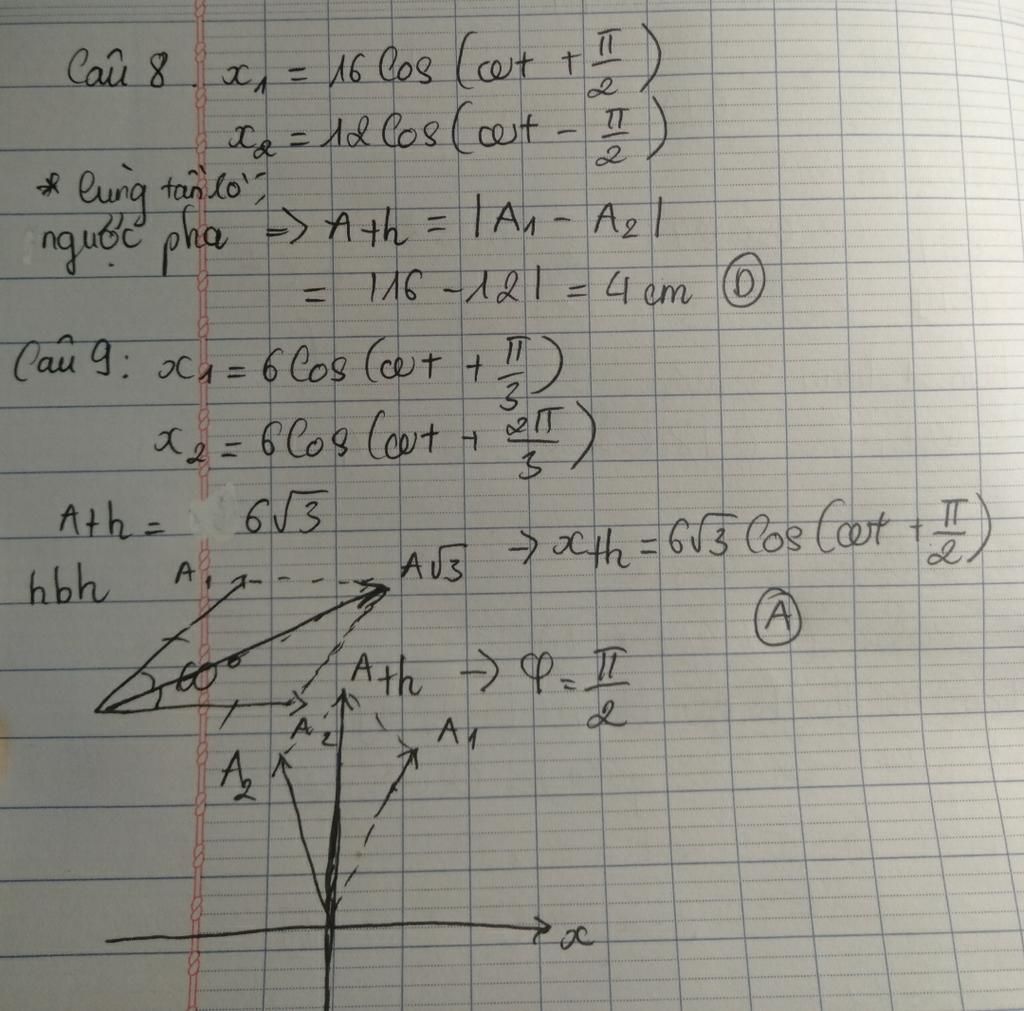 Câu 8. x₁ = 16 Cos (ωt + π/2)
x₂ = 12 Cos (ωt - π/2)
* Cùng tần số,
ngược pha => Ath = |A₁ - A₂|
= |16 - 12| = 4 cm Ⓓ
Câu 9: x₁ = 6 Cos (ωt + π/3)
x₂ = 6 Cos (ωt + 2π/3)
Ath = 6√3 → xth = 6√3 Cos (ωt + π/2)
hbh A₁ A√3 Ⓐ
60°
A₂ Ath → φ = π/2
A₂ A₁
x